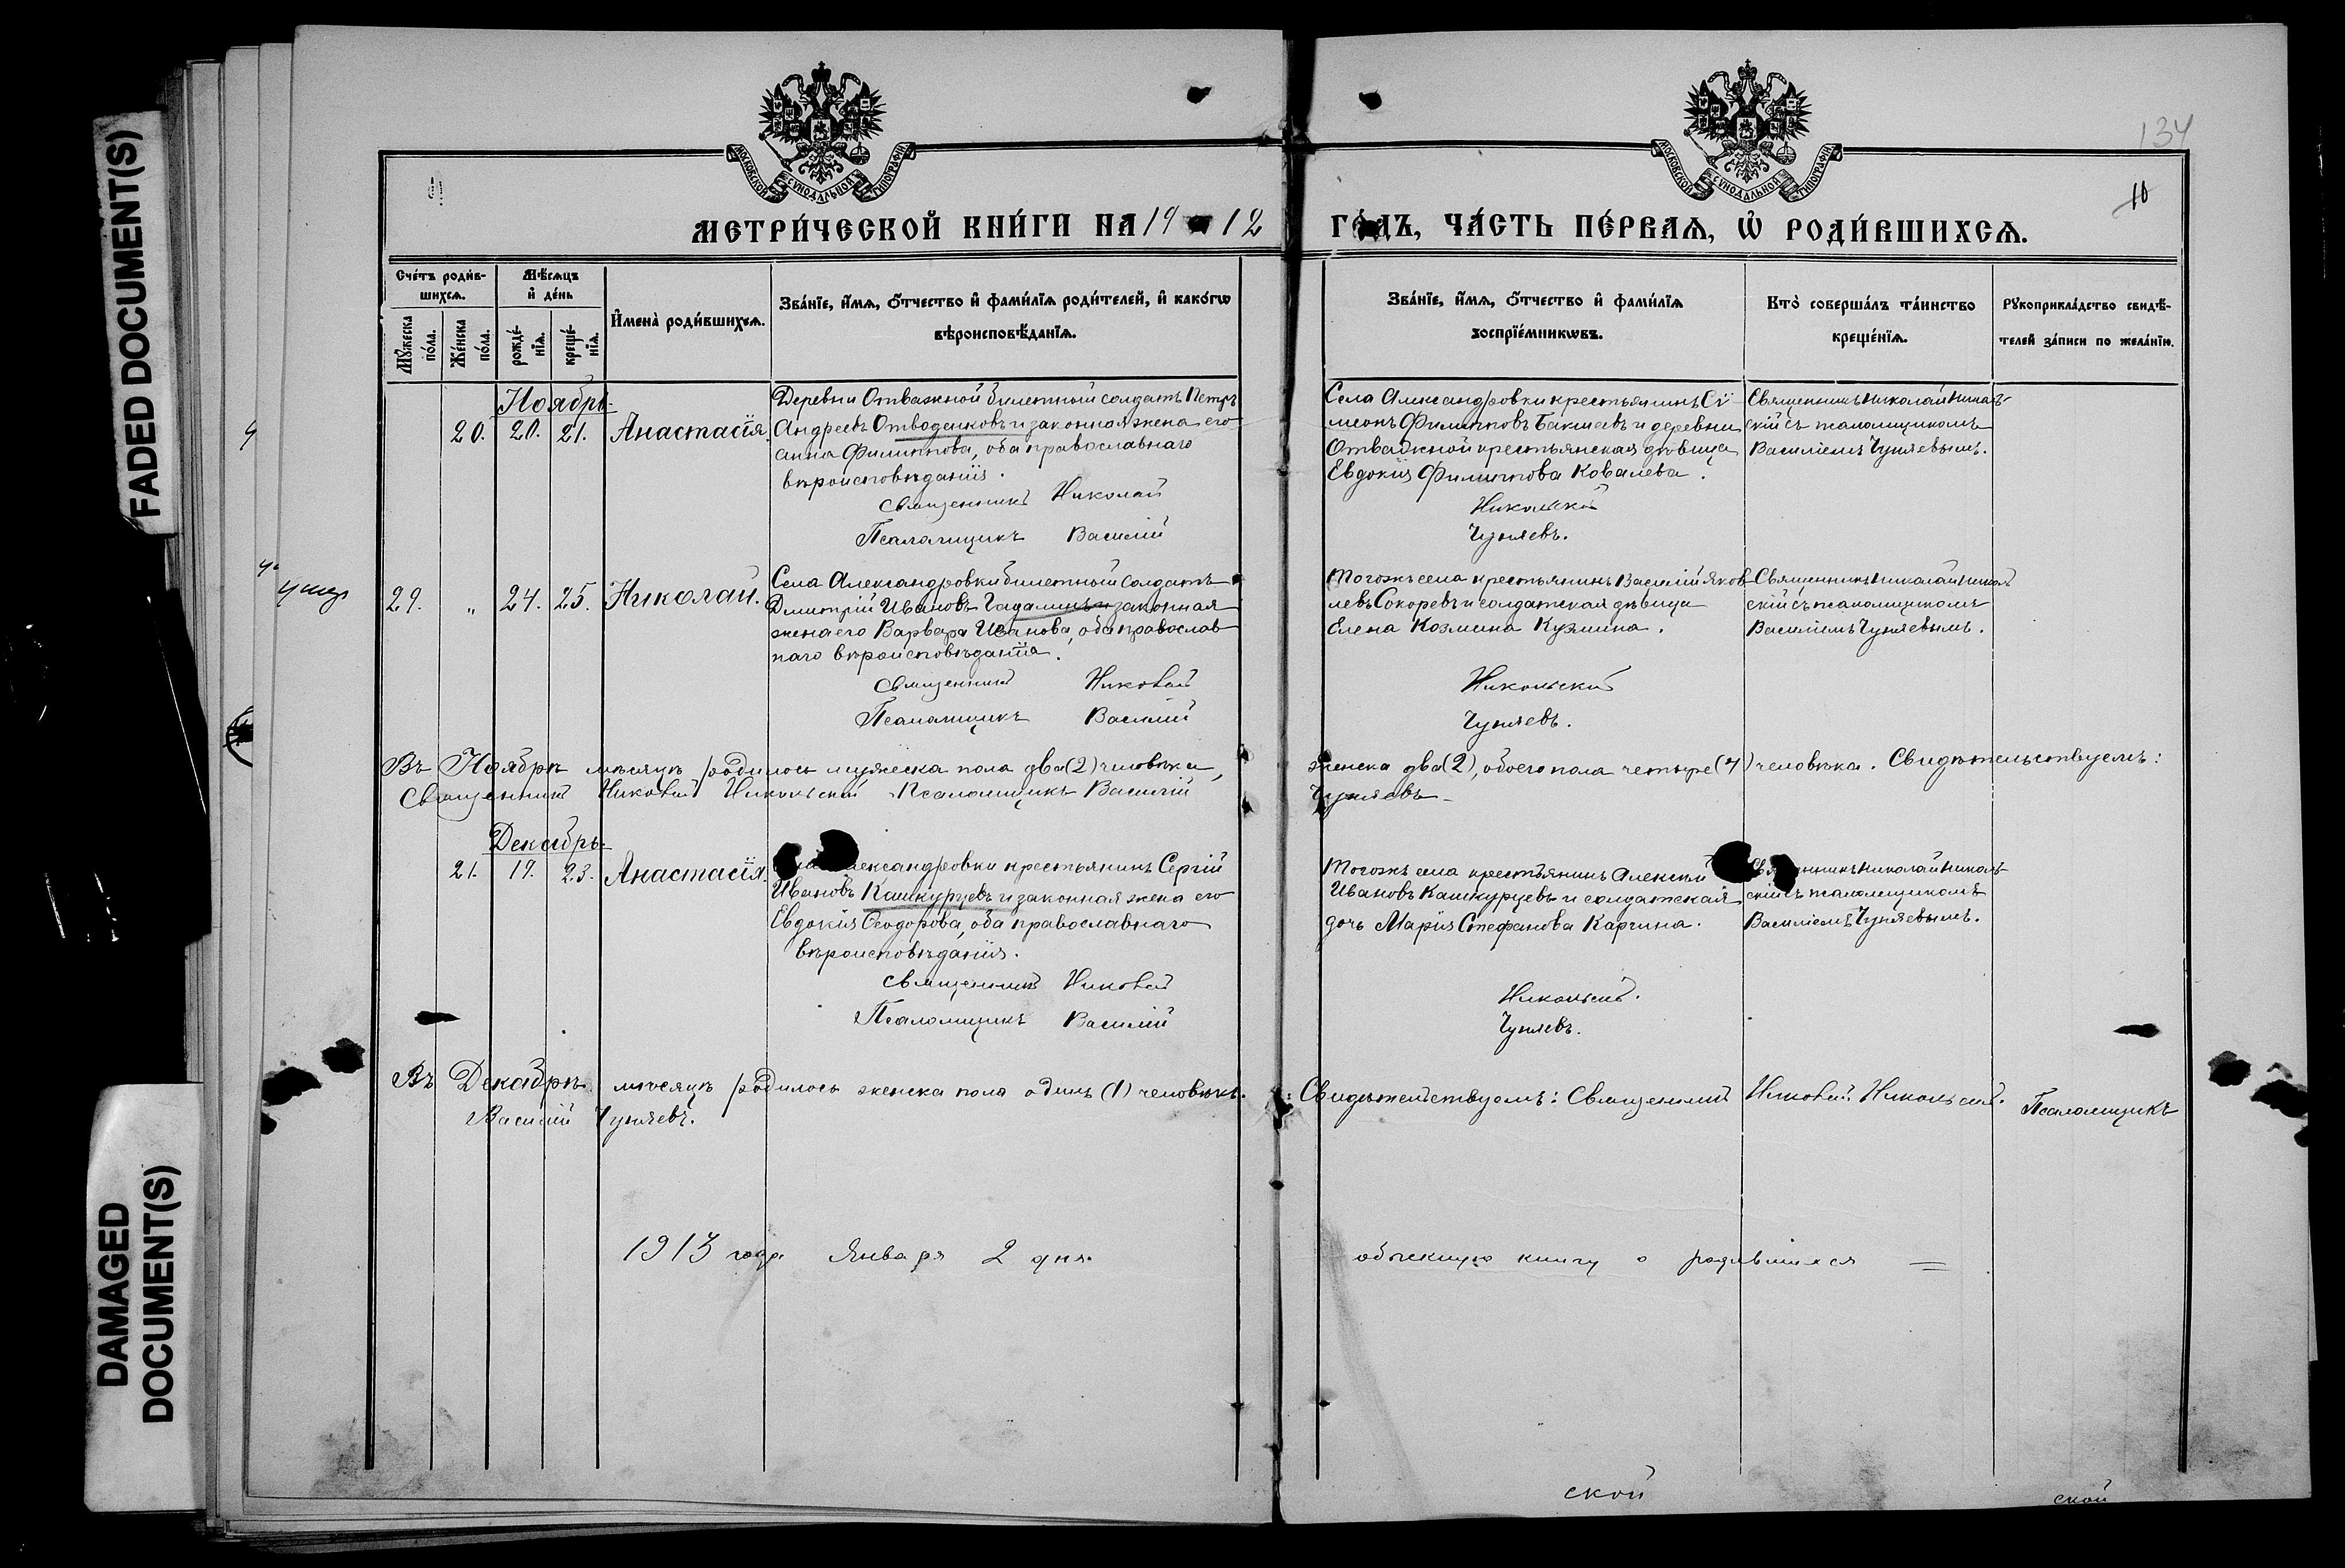 FADED DOCUMENT(S)
DAMAGED DOCUMENT(S)
МОСКОВСКОЙ СѴНОДАЛЬНОЙ ТИПОГРАФІИ
МОСКОВСКОЙ СѴНОДАЛЬНОЙ ТИПОГРАФІИ
134
10
МЕТРИ́ЧЕСКОЙ КНИ́ГИ НА 1912
ГО́ДЪ, ЧА́СТЬ ПЕ́РВАѦ, Ѽ РОДИ́ВШИХСѦ.
Сче́тъ роди́в-
шихсѧ.
Мѣ́сѧцъ
и҆ де́нь
И҆мена̀ роди́вшихсѧ.
Зва́нїе, и҆́мѧ, ѻ҆́тчество и҆ фами́лїѧ роди́телей, и҆ како́гѡ
вѣроисповѣ́данїѧ.
Мꙋ́жеска по́ла.
Же́нска по́ла.
рожде́-нїѧ.
креще́-нїѧ.
Зва́нїе, и҆́мѧ, ѻ҆́тчество и҆ фами́лїѧ
воспрїе́мникѡвъ.
Кто̀ соверша́лъ та́инство
креще́нїѧ.
Рꙋкоприкла́дство свидѣ́-
телей за́писи по жела́нїю.
Ноябрь
20. 20. 21. Анастасія.
Деревни Отважной билетный солдатъ Петръ
Андреевъ Отводенковъ и законная жена его
Анна Филиппова, оба православнаго
вѣроисповѣданія.
Священникъ Николай
Псаломщикъ Василій
Села Александровки крестьянинъ Сѵ-
меонъ Филипповъ Бакшеевъ и деревни
Отважной крестьянская дѣвица
Евдокія Филиппова Ковалева.
Никольскій
Чуняевъ.
Священникъ Николай Николь-
скій съ псаломщикомъ
Василіемъ Чуняевымъ.
29. „ 24. 25. Николай.
Села Александровки билетный солдатъ
Дмитрій Ивановъ Чадаминъ и законная
жена его Варвара Иванова, оба православ
наго вѣроисповѣданія.
Священникъ Николай
Псаломщикъ Василій
Тогожъ села крестьянинъ Василій Яков
левъ Сокоревъ и солдатская дѣвица
Елена Козмина Кузмина.
Никольскій
Чуняевъ.
Священникъ Николай Николь
скій съ псаломщикомъ
Василіемъ Чуняевымъ.
Въ Ноябрѣ мѣсяцѣ родилось мужеска пола два (2) человѣка,
женска два (2), обоего пола четыре (4) человѣка. Свидѣтельствуемъ:
Священникъ Николай Никольскій Псаломщикъ Василій
Чуняевъ
Декабрь
21. 19. 23. Анастасія.
Александровки крестьянинъ Сергій
Ивановъ Кашкуруевъ и законная жена его
Евдокія Ѳеодорова, оба православнаго
вѣроисповѣданія.
Священникъ Николай
Псаломщикъ Василій
Тогожъ села крестьянинъ Алексѣй
Ивановъ Кашкуруевъ и солдатская
дочь Марія Стефанова Каргина.
Никольскій.
Чуняевъ.
Священникъ Николай Николь-
скій съ псаломщикомъ
Василіемъ Чуняевымъ.
Въ Декабрѣ мѣсяцѣ родилось женска пола одинъ (1) человѣкъ.
Свидѣтельствуемъ: Священникъ Николай Никольскій. Псаломщикъ
Василій Чуняевъ.
1913 года Января 2 дня
обыскную книгу о родившихся
ской
ской